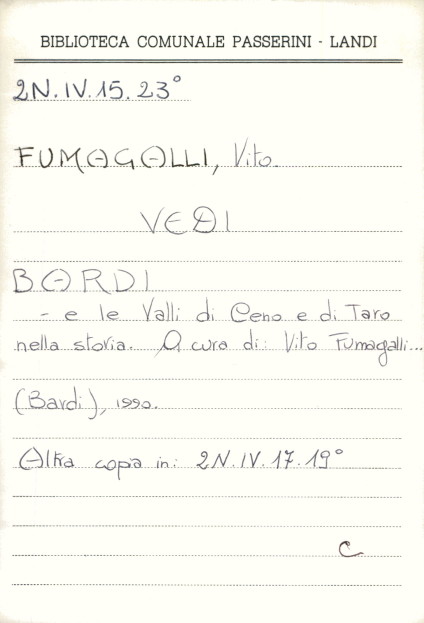 BIBLIOTECA COMUNALE PASSERINI - LANDI
2N.IV.15.23°
FUMAGALLI, Vito.
VEDI
BARDI
- e le Valli di Ceno e di Taro
nella storia. A cura di: Vito Fumagalli...
(Bardi), 1990.
Altra copia in: 2N.IV.17.19°
C